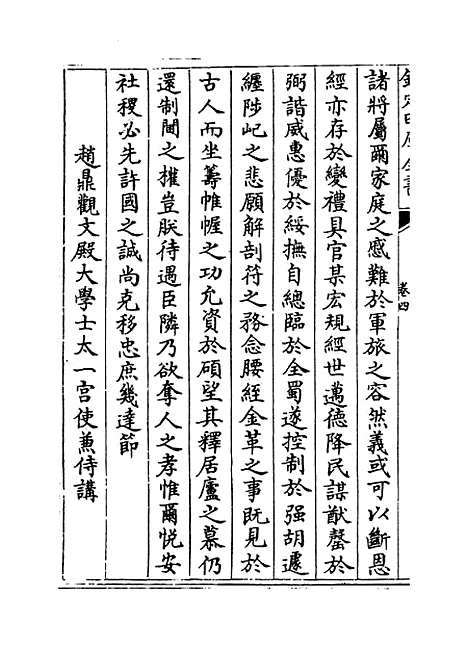 欽定四庫全書
卷四
諸將屬爾家庭之慼難於軍旅之容然義或可以斷恩
經亦存於變禮具官某宏規經世邁德降民謀猷罄於
弼諧威惠優於綏撫自總臨於全蜀遂控制於强胡遽
纒陟屺之悲願解剖符之務念腰絰金革之事既見於
古人而坐籌帷幄之功允資於碩望其釋居廬之慕仍
還制閫之權豈朕待遇臣隣乃欲奪人之孝惟爾悦安
社稷必先許國之誠尚克移忠庶幾達節
趙鼎觀文殿大學士太一宫使兼侍講